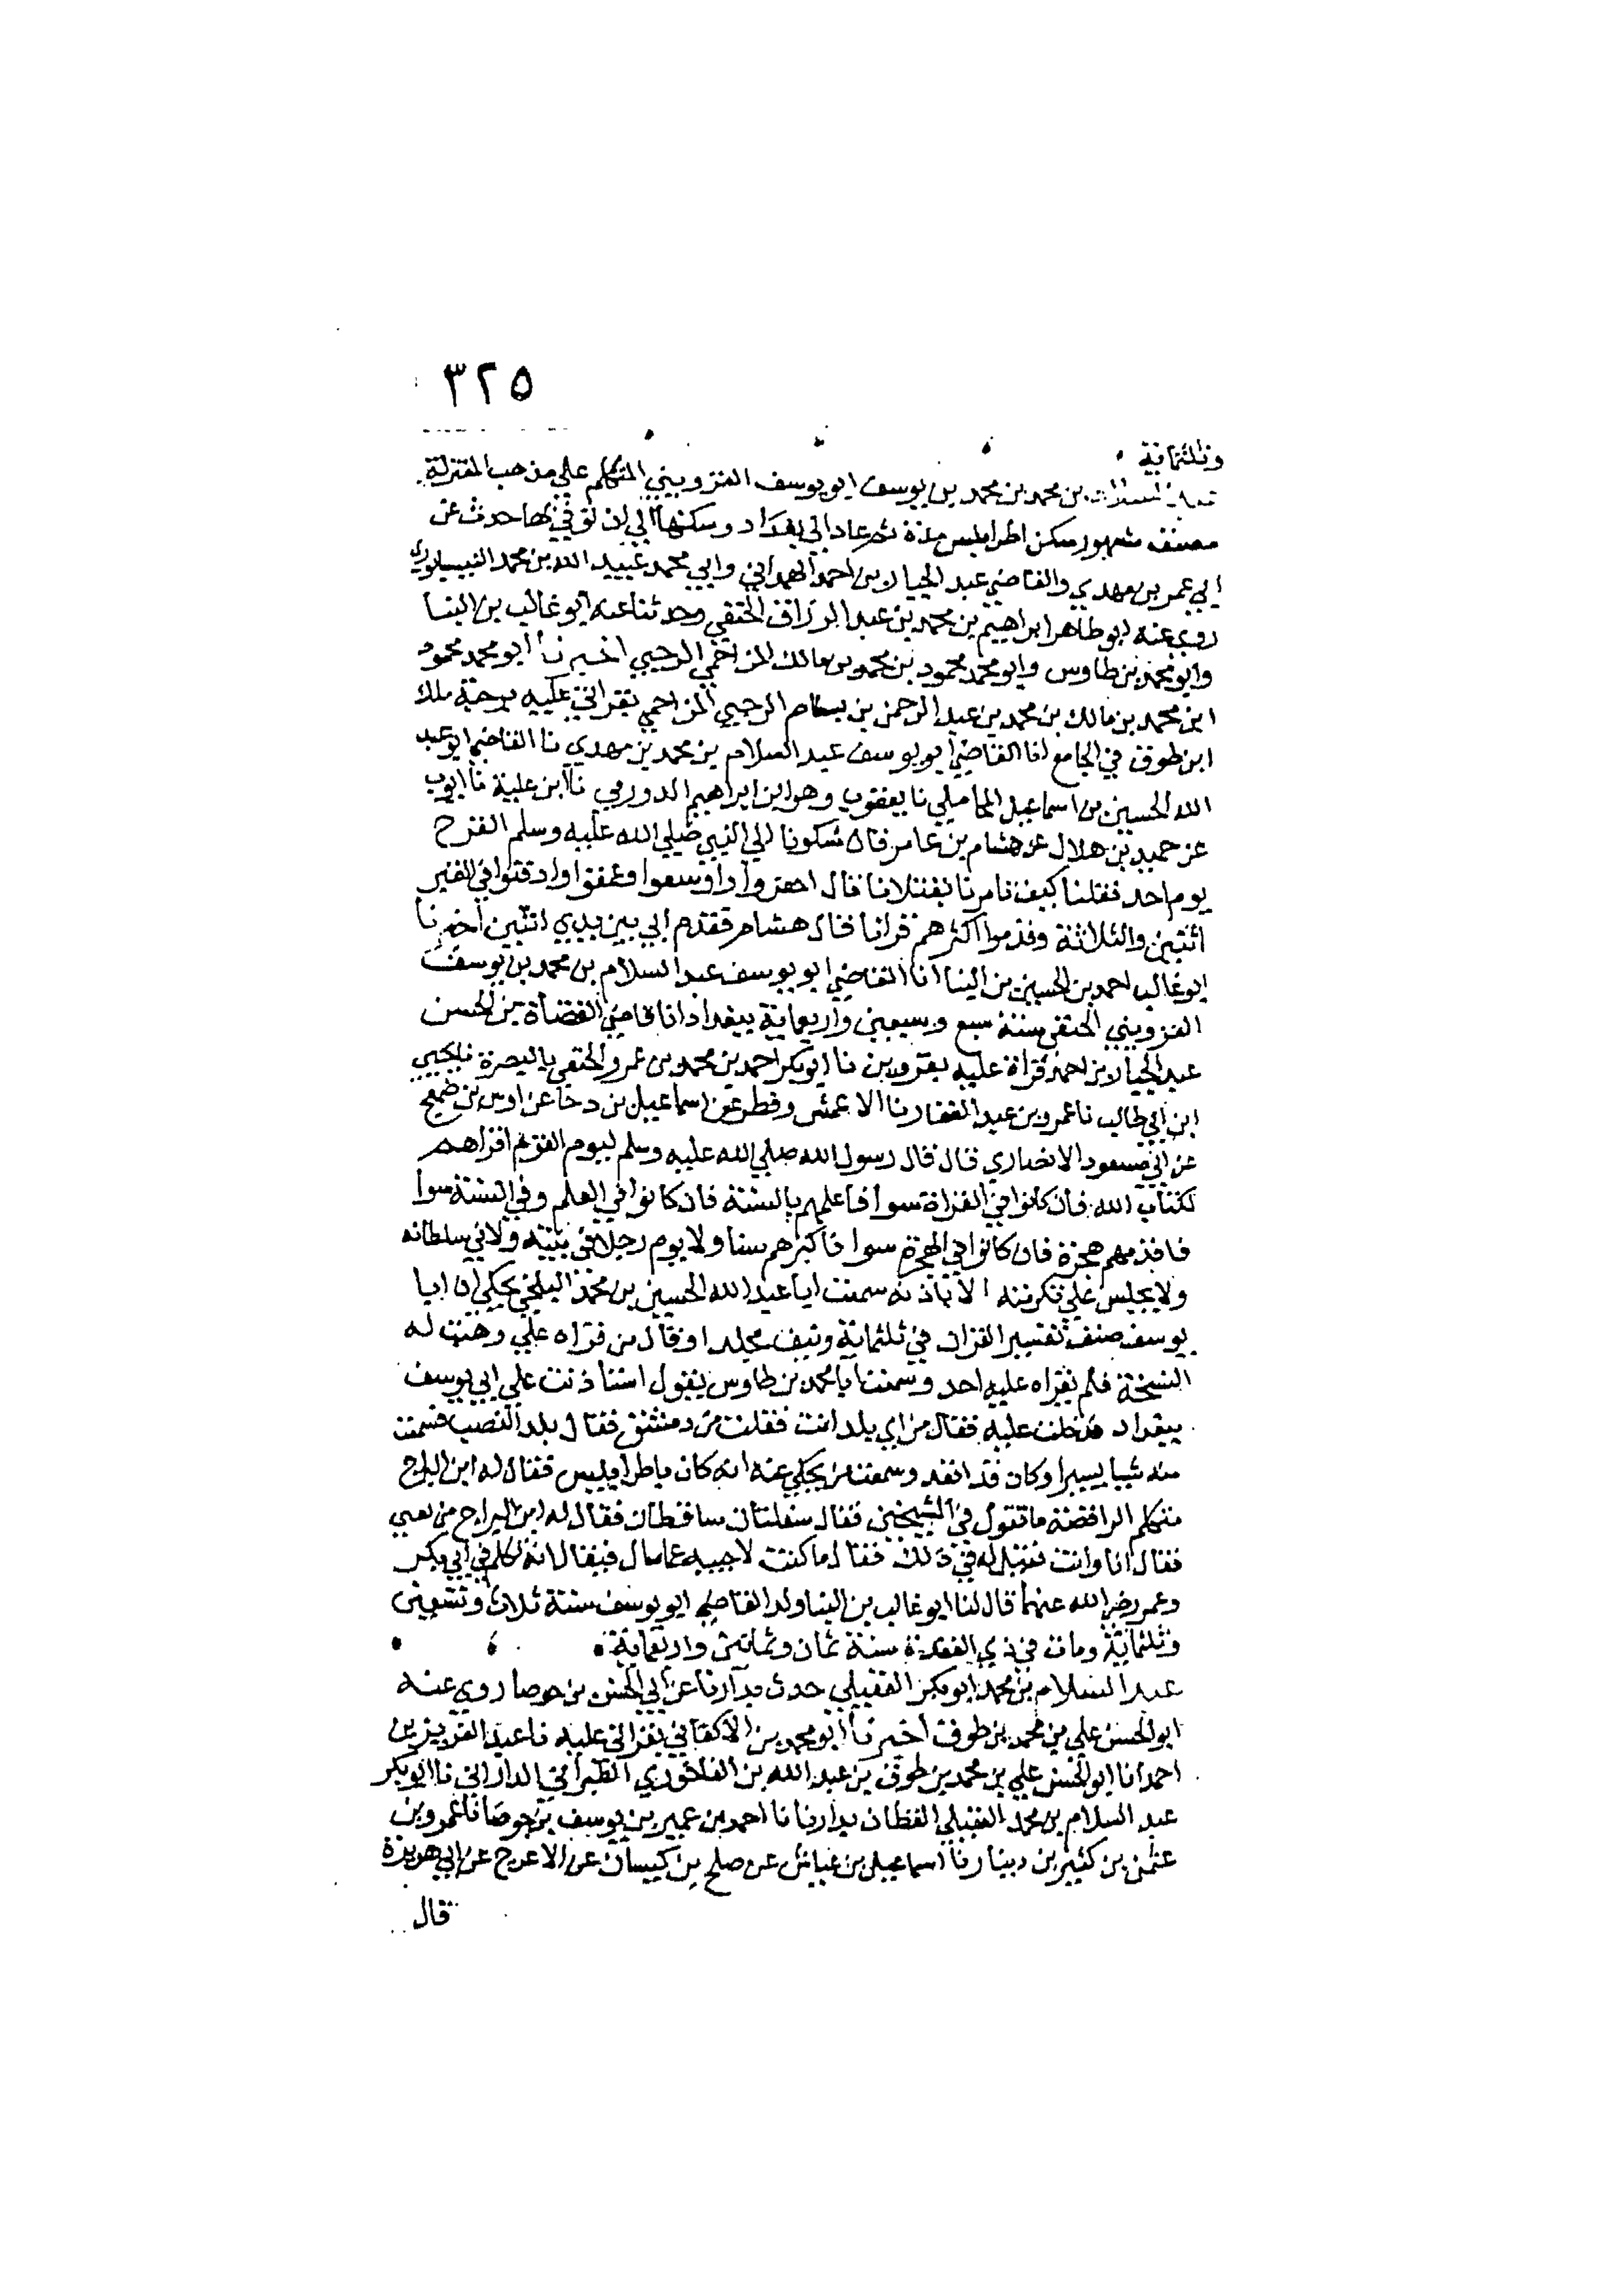 ٣٢٥
وثلثماية
عبد السلام بن محمد بن محمد بن يوسف ابو يوسف القزويني المتكلم علي مذهب المعتزلة
مصنف مشهور سكن اطرابلس مدة ثم عاد الي بغداد وسكنها الي ان توفي بها حدث عن
ابي عمر بن مهدي والقاضي عبد الجبار بن احمد الهمداني وابي محمد عبيد الله بن محمد النيسابوري
روي عنه ابو طاهر ابراهيم بن محمد بن عبد الرزاق الحنفي وحدثنا عنه ابو غالب بن البنا
وابو محمد بن طاوس وابو محمد محمود بن محمد بن مالك المزاحمي الرحبي اخبرنا ابو محمد محمود
ابن محمد بن مالك بن محمد بن عبد الرحمن بن بسام الرحبي المزاحمي بقراتي عليه برحبة ملك
ابن طوق في الجامع انا القاضي ابو يوسف عبد السلام بن محمد بن مهدي نا القاضي ابو عبد
الله الحسين بن اسماعيل المحاملي نا يعقوب وهو ابن ابراهيم الدورقي نا ابن علية نا ايوب
عن حميد بن هلال عن هشام بن عامر قال شكونا الي النبي صلي الله عليه وسلم القرح
يوم احد فقلنا كيف تامرنا بقتلانا فقال احفروا واوسعوا وعمقوا وادفنوا في القبر
اثنين والثلاثة وقدموا اكثرهم قرانا قال هشام فقدم ابي بين يدي اثنين اخبرنا
ابو غالب احمد بن الحسين بن البنا انا القاضي ابو يوسف عبد السلام بن محمد بن يوسف
القزويني الحنفي سنة سبع وسبعين واربعماية ببغداد انا قاضي القضاة بن الحسن
عبد الجبار بن احمد قراة عليه بقزوين نا ابو بكر احمد بن محمد بن عمرو الحنفي بالبصرة نا يحيي
ابن ابي طالب نا عمرو بن عبد الغفار نا الاعمش وفطر عن اسماعيل بن رجا عن اوس بن ضمعج
عن ابي مسعود الانصاري قال قال رسول الله صلي الله عليه وسلم ليوم القوم اقراهم
لكتاب الله فان كانوا في القراة سوا فاعلمهم بالسنة فان كانوا في العلم وفي السنة سوا
فاقدمهم هجرة فان كانوا في الهجرة سوا فاكبرهم سنا ولا يوم رجلا في بيته ولا في سلطانه
ولا يجلس علي تكرمته الا باذنه سمعت ابا عبد الله الحسين بن محمد البلخي يحكي ان ابا
يوسف صنف تفسير القران في ثلثماية ونيف مجلدا وقال من قراه علي وهبت له
النسخة فلم يقراه عليه احد وسمعت ابا محمد بن طاوس يقول استاذنت علي ابي يوسف
ببغداد فدخلت عليه فقال من اي بلد انت فقلت من دمشق فقال بلد النصب فسمعت
منه شيا يسيرا وكان قد اقعد وسمعت من يحكي عنه انه كان باطرابليس فقال له ابن البراج
متكلم الرافضة ما تقول في الشيخين فقال سفلتان ساقطان فقال له ابن البراج من تعني
فقال انا وانت فقيل له في ذلك فقال ما كنت لاجيبه عما سال فيقال انه تكلم في ابي بكر
وعمر رضي الله عنهما قال لنا ابو غالب بن البنا ولد القاضي ابو يوسف سنة ثلاث وتسعين
وثلثماية ومات في ذي القعدة سنة ثمان وثمانين واربعماية
عبد السلام بن محمد ابو بكر العقيلي حدث بداريا عن ابي الحسن بن جوصا روي عنه
ابو الحسن علي بن محمد بن طوق اخبرنا ابو محمد بن الاكفاني بقراتي عليه نا عبد العزيز بن
احمد انا ابو الحسن علي بن محمد بن طوق بن عبد الله بن الفاخوري الطبراني الداراني نا ابو بكر
عبد السلام بن محمد العقيلي القطان بداريا نا احمد بن عمير بن يوسف بن جوصا نا عمرو بن
عثمن بن كثير بن دينار نا اسماعيل بن عياش عن صلح بن كيسان عن الاعرج عن ابي هريرة
قال